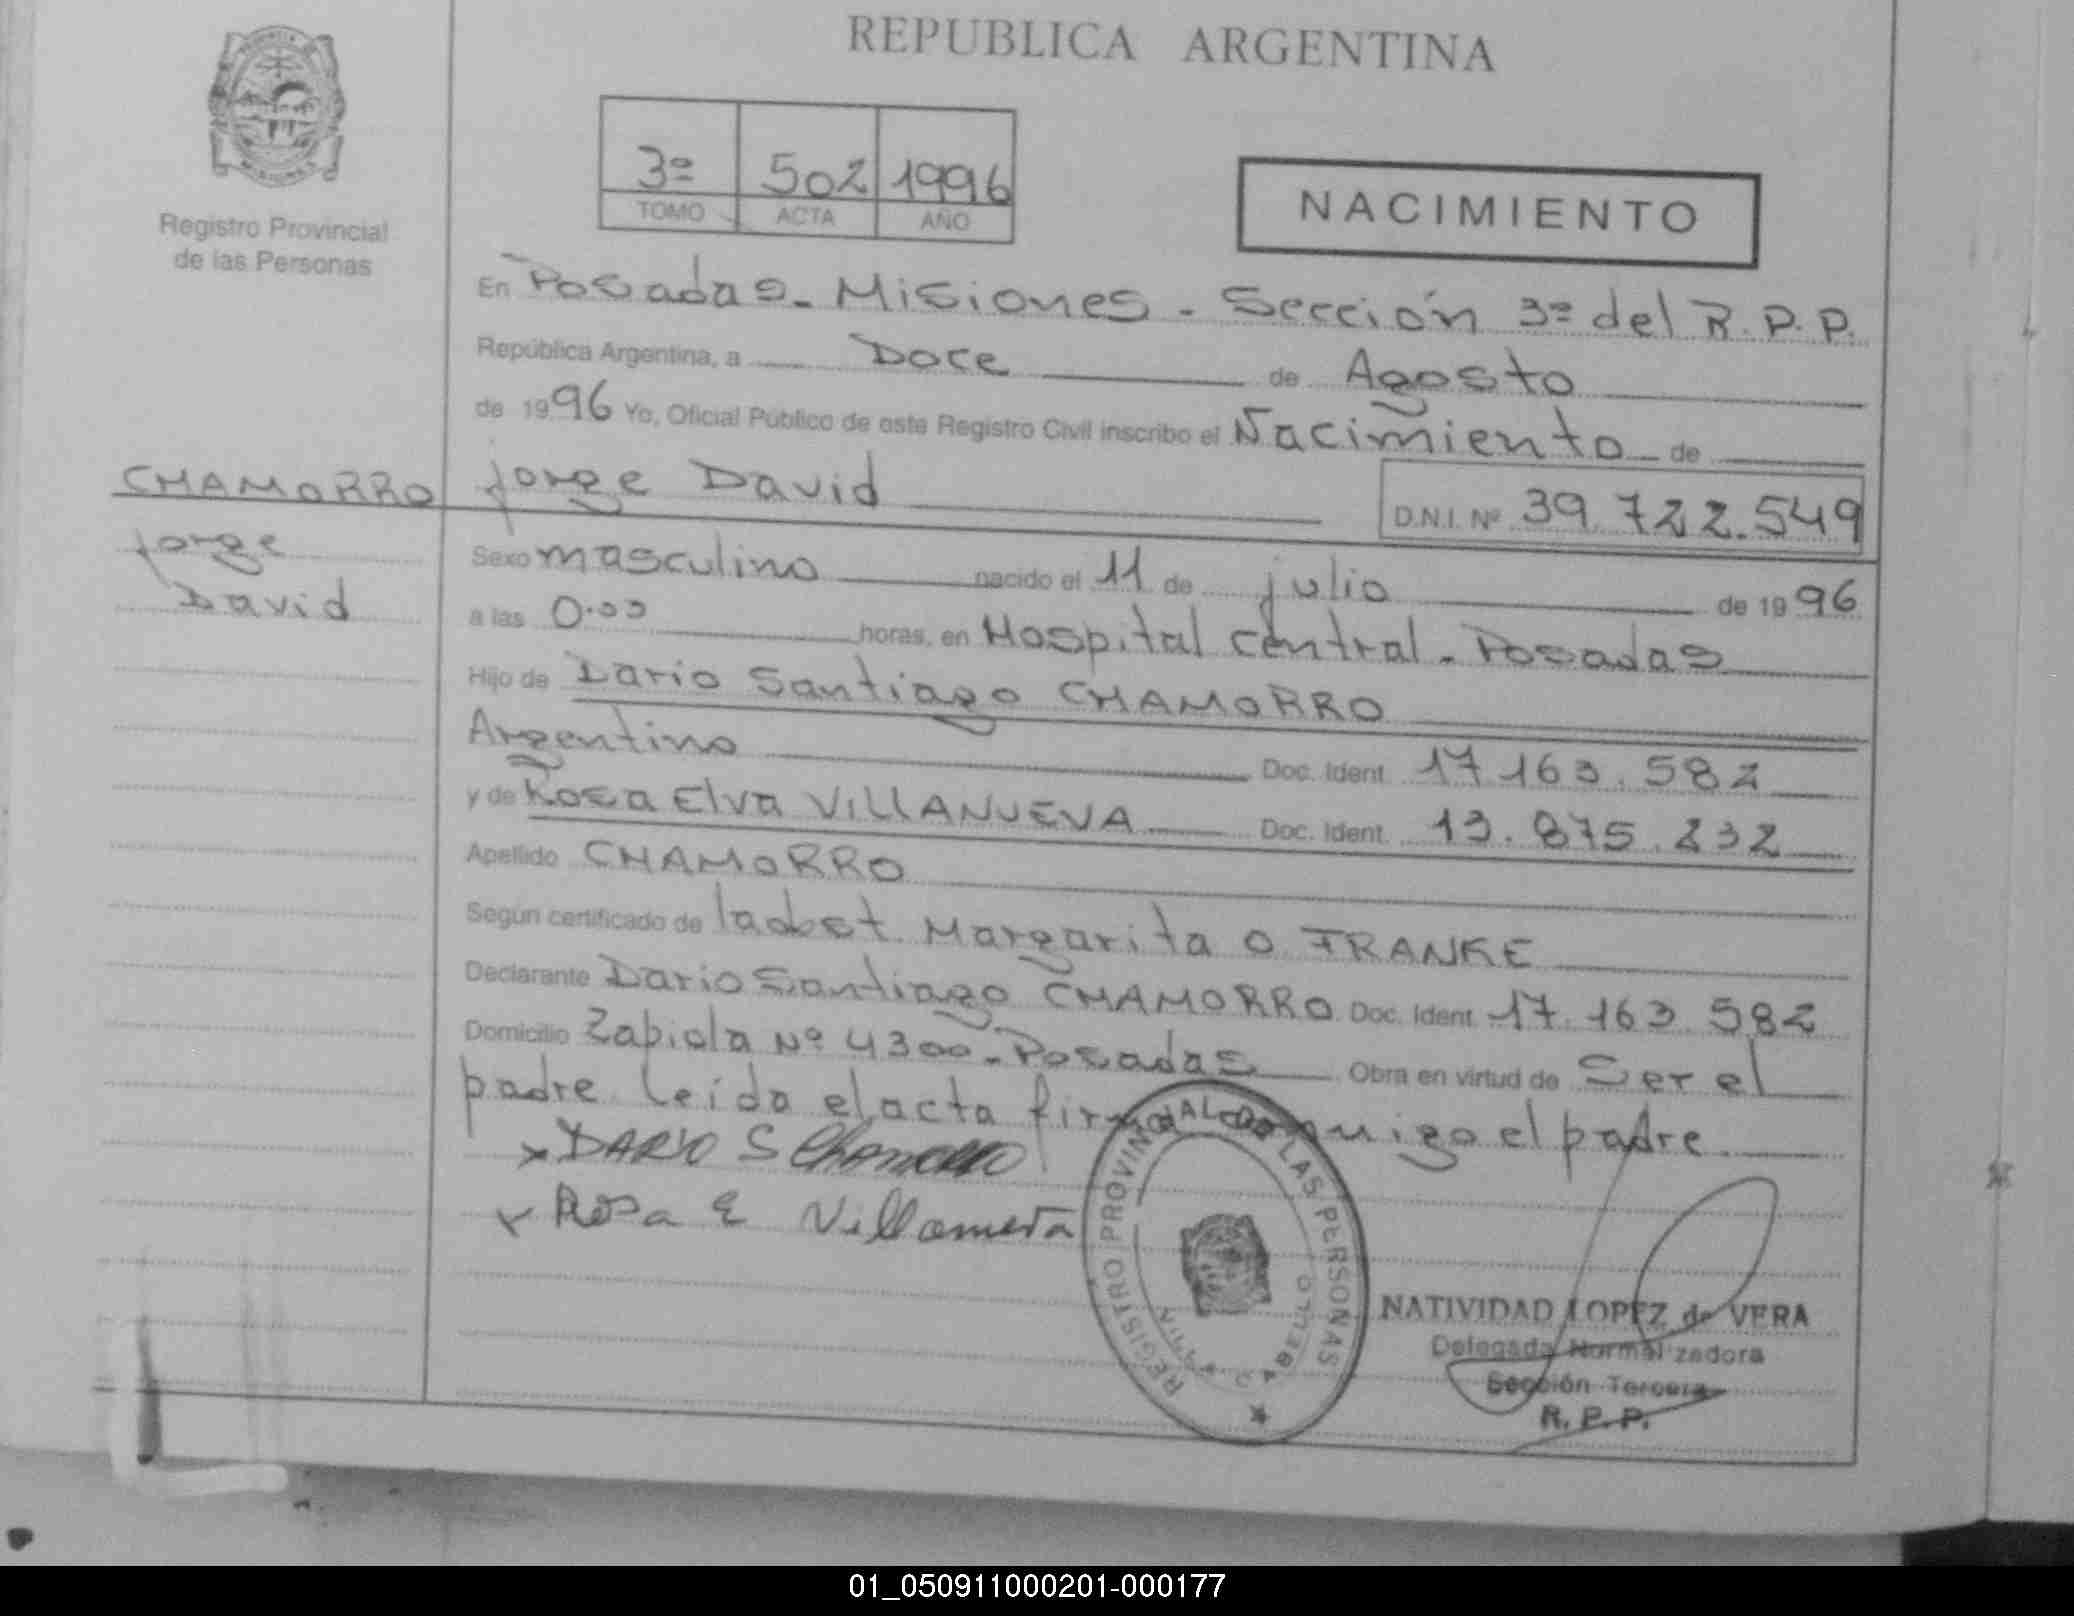 REPUBLICA ARGENTINA
3º 502 1996
TOMO ACTA AÑO
NACIMIENTO
Registro Provincial
de las Personas
En Posadas - Misiones - Sección 3º del R.P.P.
República Argentina, a Doce de Agosto
de 1996 Yo, Oficial Público de este Registro Civil inscribo el Nacimiento de
CHAMORRO Jorge David D.N.I. Nº 39.722.549
Jorge
David
Sexo masculino nacido el 11 de julio de 1996
a las 0.00 horas, en Hospital Central - Posadas
Hijo de Dario Santiago CHAMORRO
Argentino Doc. Ident. 17.163.582
y de Rosa Elva VILLANUEVA Doc. Ident. 13.875.232
Apellido CHAMORRO
Según certificado de obst. Margarita O. FRANKE
Declarante Dario Santiago CHAMORRO Doc. Ident. 17.163.582
Domicilio Zapiola Nº 4300 - Posadas Obra en virtud de Ser el
padre. Leida el acta firma conmigo el padre
x DARIO S Chamorro
x Rosa E Villanueva
REGISTRO PROVINCIAL DE LAS PERSONAS
NATIVIDAD LOPEZ de VERA
Delegada Normalizadora
Sección Tercera
R. P. P.
01_050911000201-000177